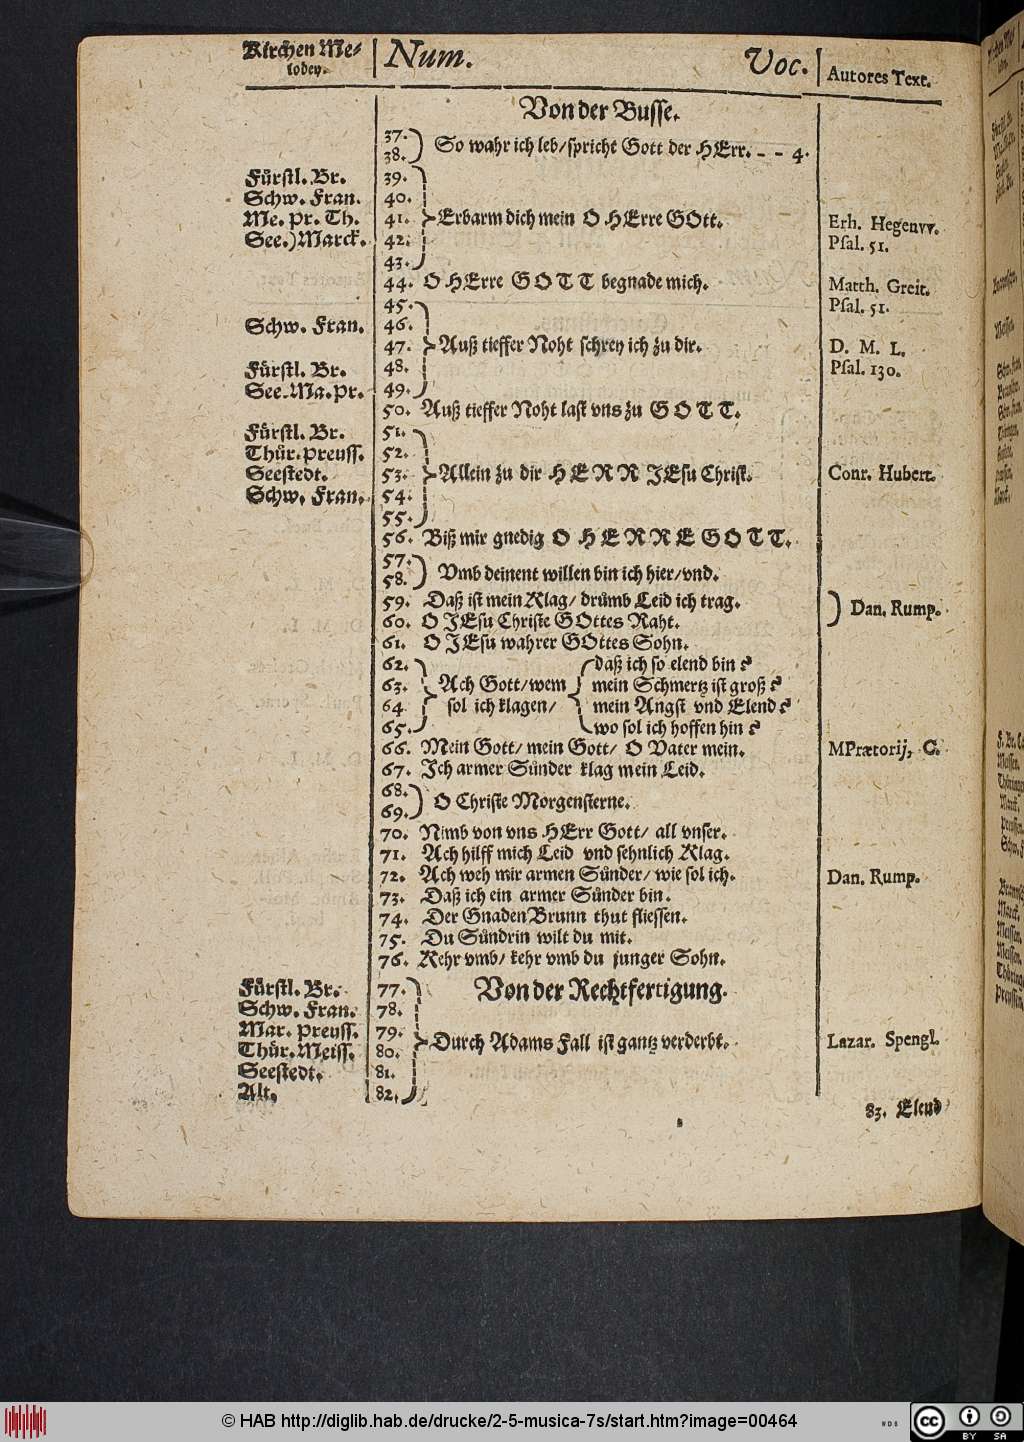 Kirchen Me- | Num. Voc. | Autores Text.
lodey.
Von der Busse.
37.
38. So wahr ich leb/ spricht Gott der HErr. - - 4.
Fürstl. Br. 39.
Schw. Fran. 40.
Me. Pr. Th. 41. Erbarm dich mein O HErre GOtt. Erh. Hegenvv.
See.) Marck. 42. Psal. 51.
43.
44. O HErre GOTT begnade mich. Matth. Greit.
45. Psal. 51.
Schw. Fran. 46.
47. Auß tieffer Noht schrey ich zu dir. D. M. L.
Fürstl. Br. 48. Psal. 130.
See. Ma. Pr. 49.
50. Auß tieffer Noht last vns zu GOTT.
Fürstl. Br. 51.
Thür. Preuss. 52.
Seestedt. 53. Allein zu dir HERR JEsu Christ. Conr. Hubert.
Schw. Fran. 54.
55.
56. Biß mir gnedig O HERRE GOTT.
57.
58. Vmb deinent willen bin ich hier/ vnd.
59. Daß ist mein Klag/ drümb Leid ich trag. Dan. Rump.
60. O JEsu Christe GOttes Raht.
61. O JEsu wahrer GOttes Sohn.
62. daß ich so elend bin?
63. Ach Gott/ wem mein Schmertz ist groß?
64 sol ich klagen/ mein Angst vnd Elend?
65. wo sol ich hoffen hin?
66. Mein Gott/ mein Gott/ O Vater mein. MPrætorij, C.
67. Ich armer Sünder klag mein Leid.
68.
69. O Christe Morgensterne.
70. Nimb von vns HErr Gott/ all vnser.
71. Ach hilff mich Leid vnd sehnlich Klag.
72. Ach weh mir armen Sünder/ wie sol ich. Dan. Rump.
73. Daß ich ein armer Sünder bin.
74. Der GnadenBrunn thut fliessen.
75. Du Sündrin wilt du mit.
76. Kehr vmb/ kehr vmb du junger Sohn.
Fürstl. Br. 77. Von der Rechtfertigung.
Schw. Fran. 78.
Mar. Preuss. 79.
Thür. Meiss. 80. Durch Adams Fall ist gantz verderbt. Lazar. Spengl.
Seestedt. 81.
Alt. 82.
83. Elend
© HAB http://diglib.hab.de/drucke/2-5-musica-7s/start.htm?image=00464
CC BY SA